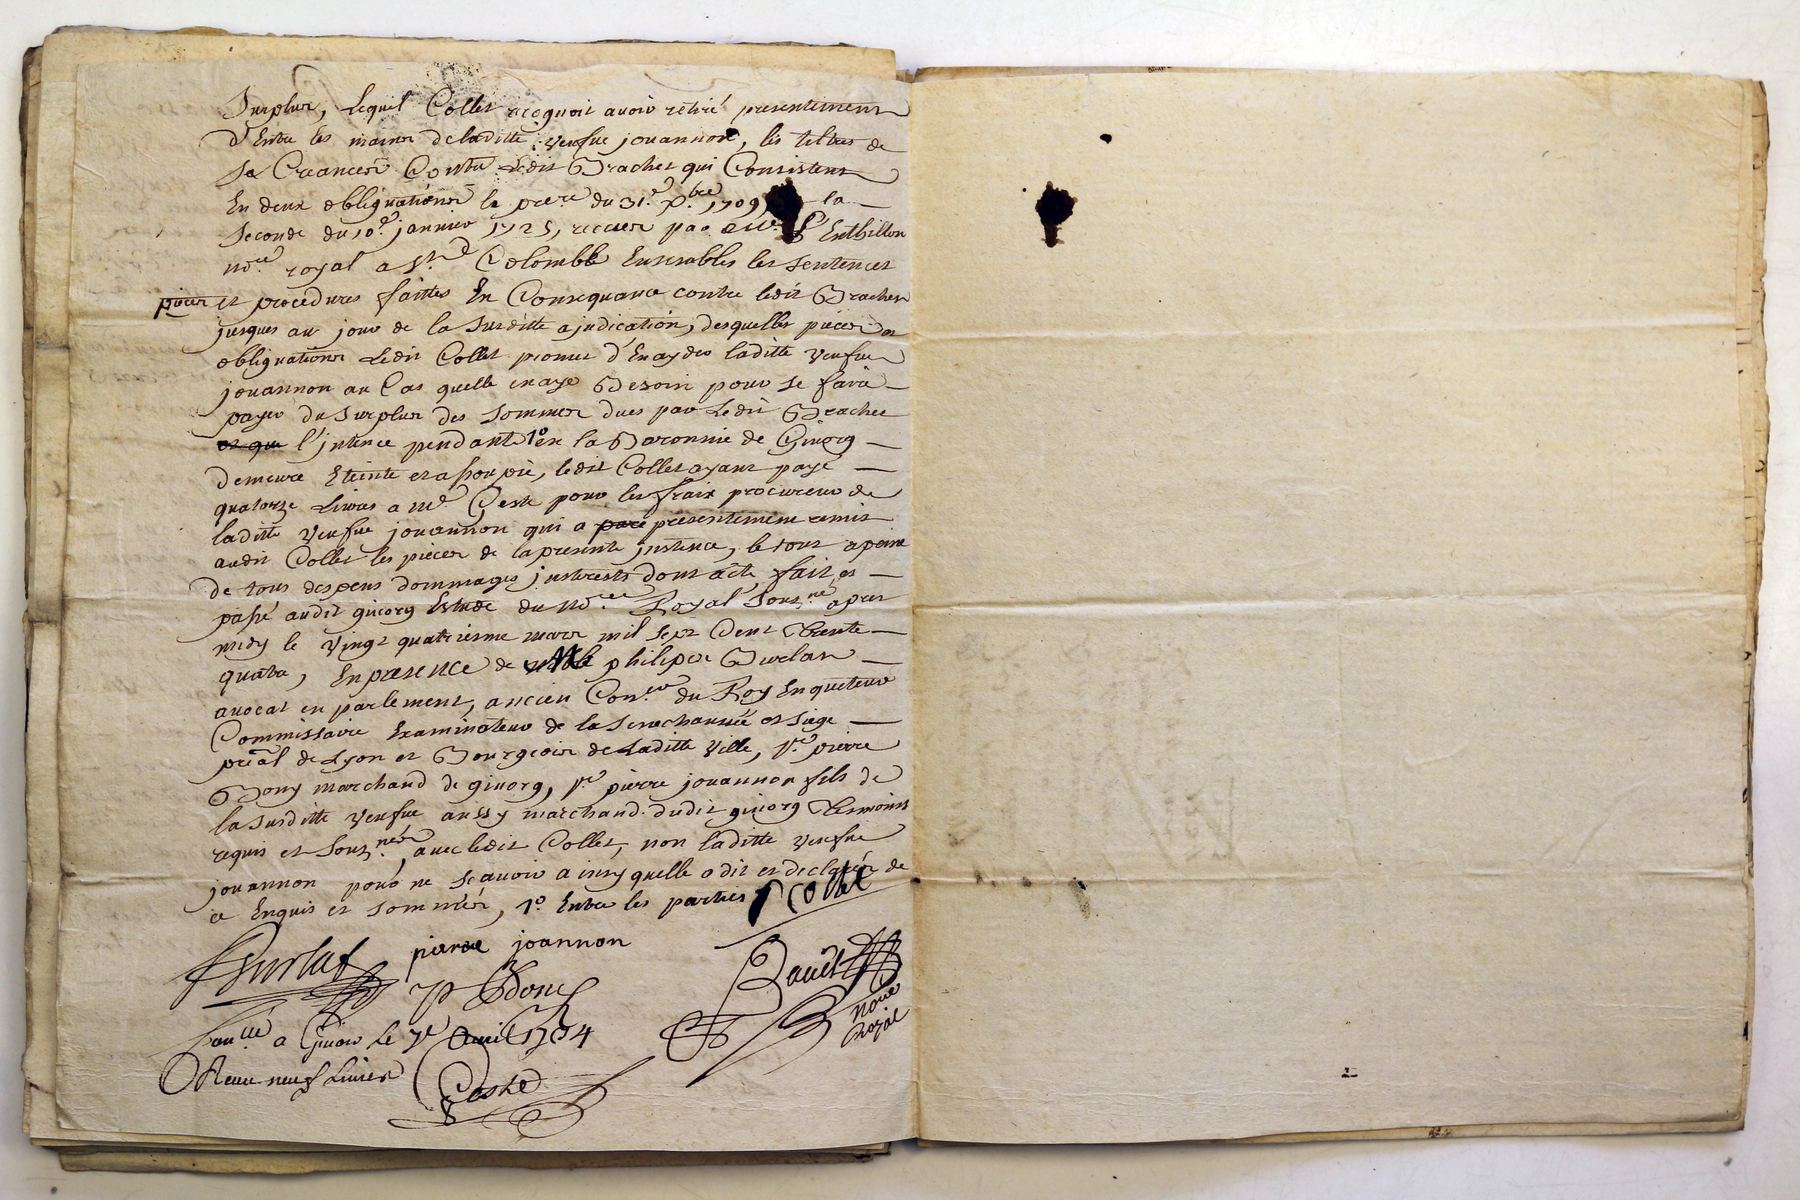 Surplus, Lequel Collet recognoit avoir retiré presentement
d'Entre les mains de laditte veufve jouannon, les tiltres de
Sa Creances Contre Ledit Brachet qui Consistent
En deux obliguations la pre.re du 31.e Xbre 1709 la
Seconde du 10.e janvier 1725, receues par Enthillon
no.re royal a Ste Colombe Ensembles les Sentences
pieces et procedures faittes En Consequance contre ledit Brachet
jusques au jour de la Susditte ajudication, desquelles pieces et
obliguations Ledit Collet promet d'En ayder laditte veufve
jouannon au Cas quelle en aye Besoin pour se faire
payer du Surplus des Sommes dues par Ledit Brachet
et que l'jntence pendante en la Baronnie de Givors
demeure Eteinte et assoupie, ledit Collet ayant payé
quatorze Livres a Me Coste pour les fraix procureur de
laditte veufve jouannon qui a paré presentement remis
audit Collet les pieces de la presente jnstence, le tout a peine
de tous despens dommages jnterests dont acte, fait et
passé audit givors Estude du No.re Royal Sous.né apres
midy le vingt quatriesme mars mil sept Cent Trente
quatre, En presence de philipes Burlat
avocat en parlement, ancien Con.er du Roy Enqueteur
Commissaire Examinateur de la Senechaussée et Siege
préal de Lyon et Bourgeois de Laditte ville, Sr pierre
Bony marchand de givors, Sr pierre jouannon fils de
la Susditte veufve aussy marchand dudit givors Tesmoins
requis et Sous.nés, avec ledit Collet, non laditte veufve
jouannon pour ne Scavoir ainsy quelle a dit et declaré de
ce Enquis et Sommés, 1o Entre les parties Collet
Burlat pierre joannon
P Bony
Baudt
no.re
Royal
a Givors Le 7e Avril 1734
Receu neuf Livres
Coste